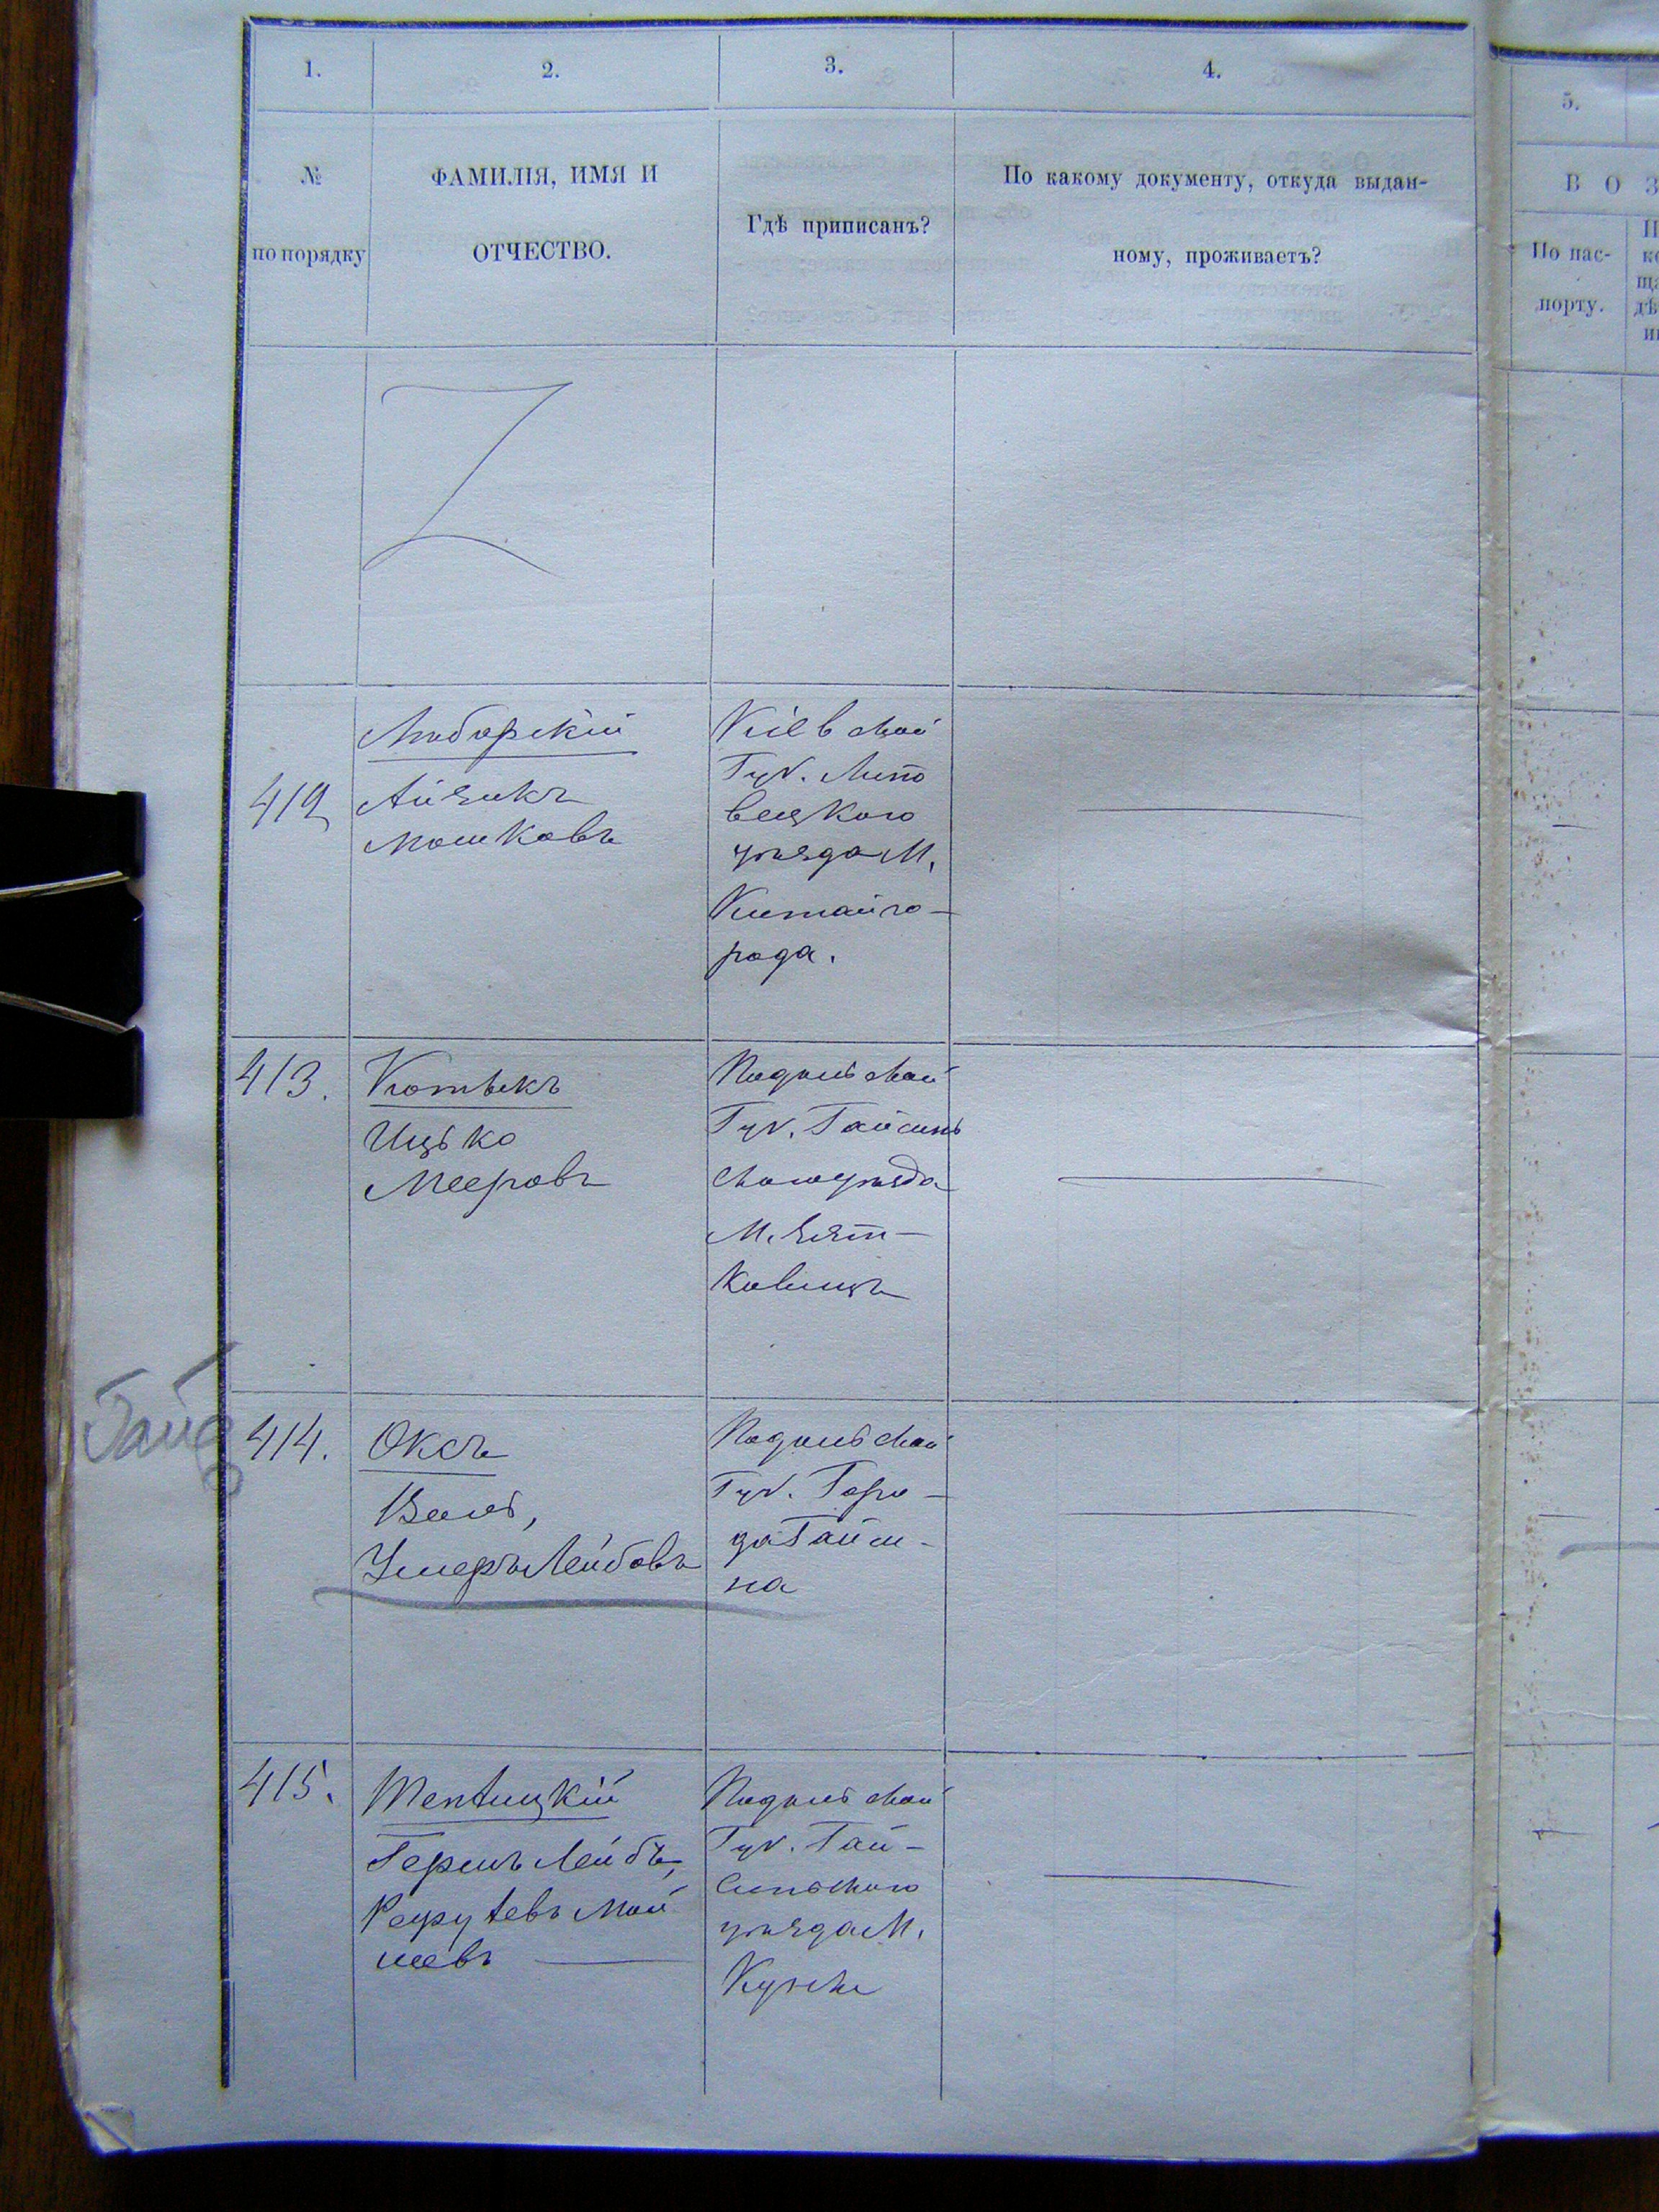 1.
2.
3.
4.
5.
№
по порядку
ФАМИЛІЯ, ИМЯ И
ОТЧЕСТВО.
Гдѣ приписанъ?
По какому документу, откуда выдан-
ному, проживаетъ?
В О З
По пас-
порту.
412
Любарскій
Айзикъ
Мошковъ
Кіевской
Губ. Липо
вецкого
уѣзда М.
Китайго-
рода.
413.
Котыкъ
Ицько
Мееровъ
Подольской
Губ. Гайсинь
ского уѣзда
М. Зят-
ковицъ
414.
Оксъ
Вольф,
Умеръ Лейбовъ
Подольской
Губ. Горо-
да Гайси-
на
415.
Теплицкій
Гершъ Лейбъ,
Мой
шевъ
Подольской
Губ. Гай-
синьского
уѣзда М.